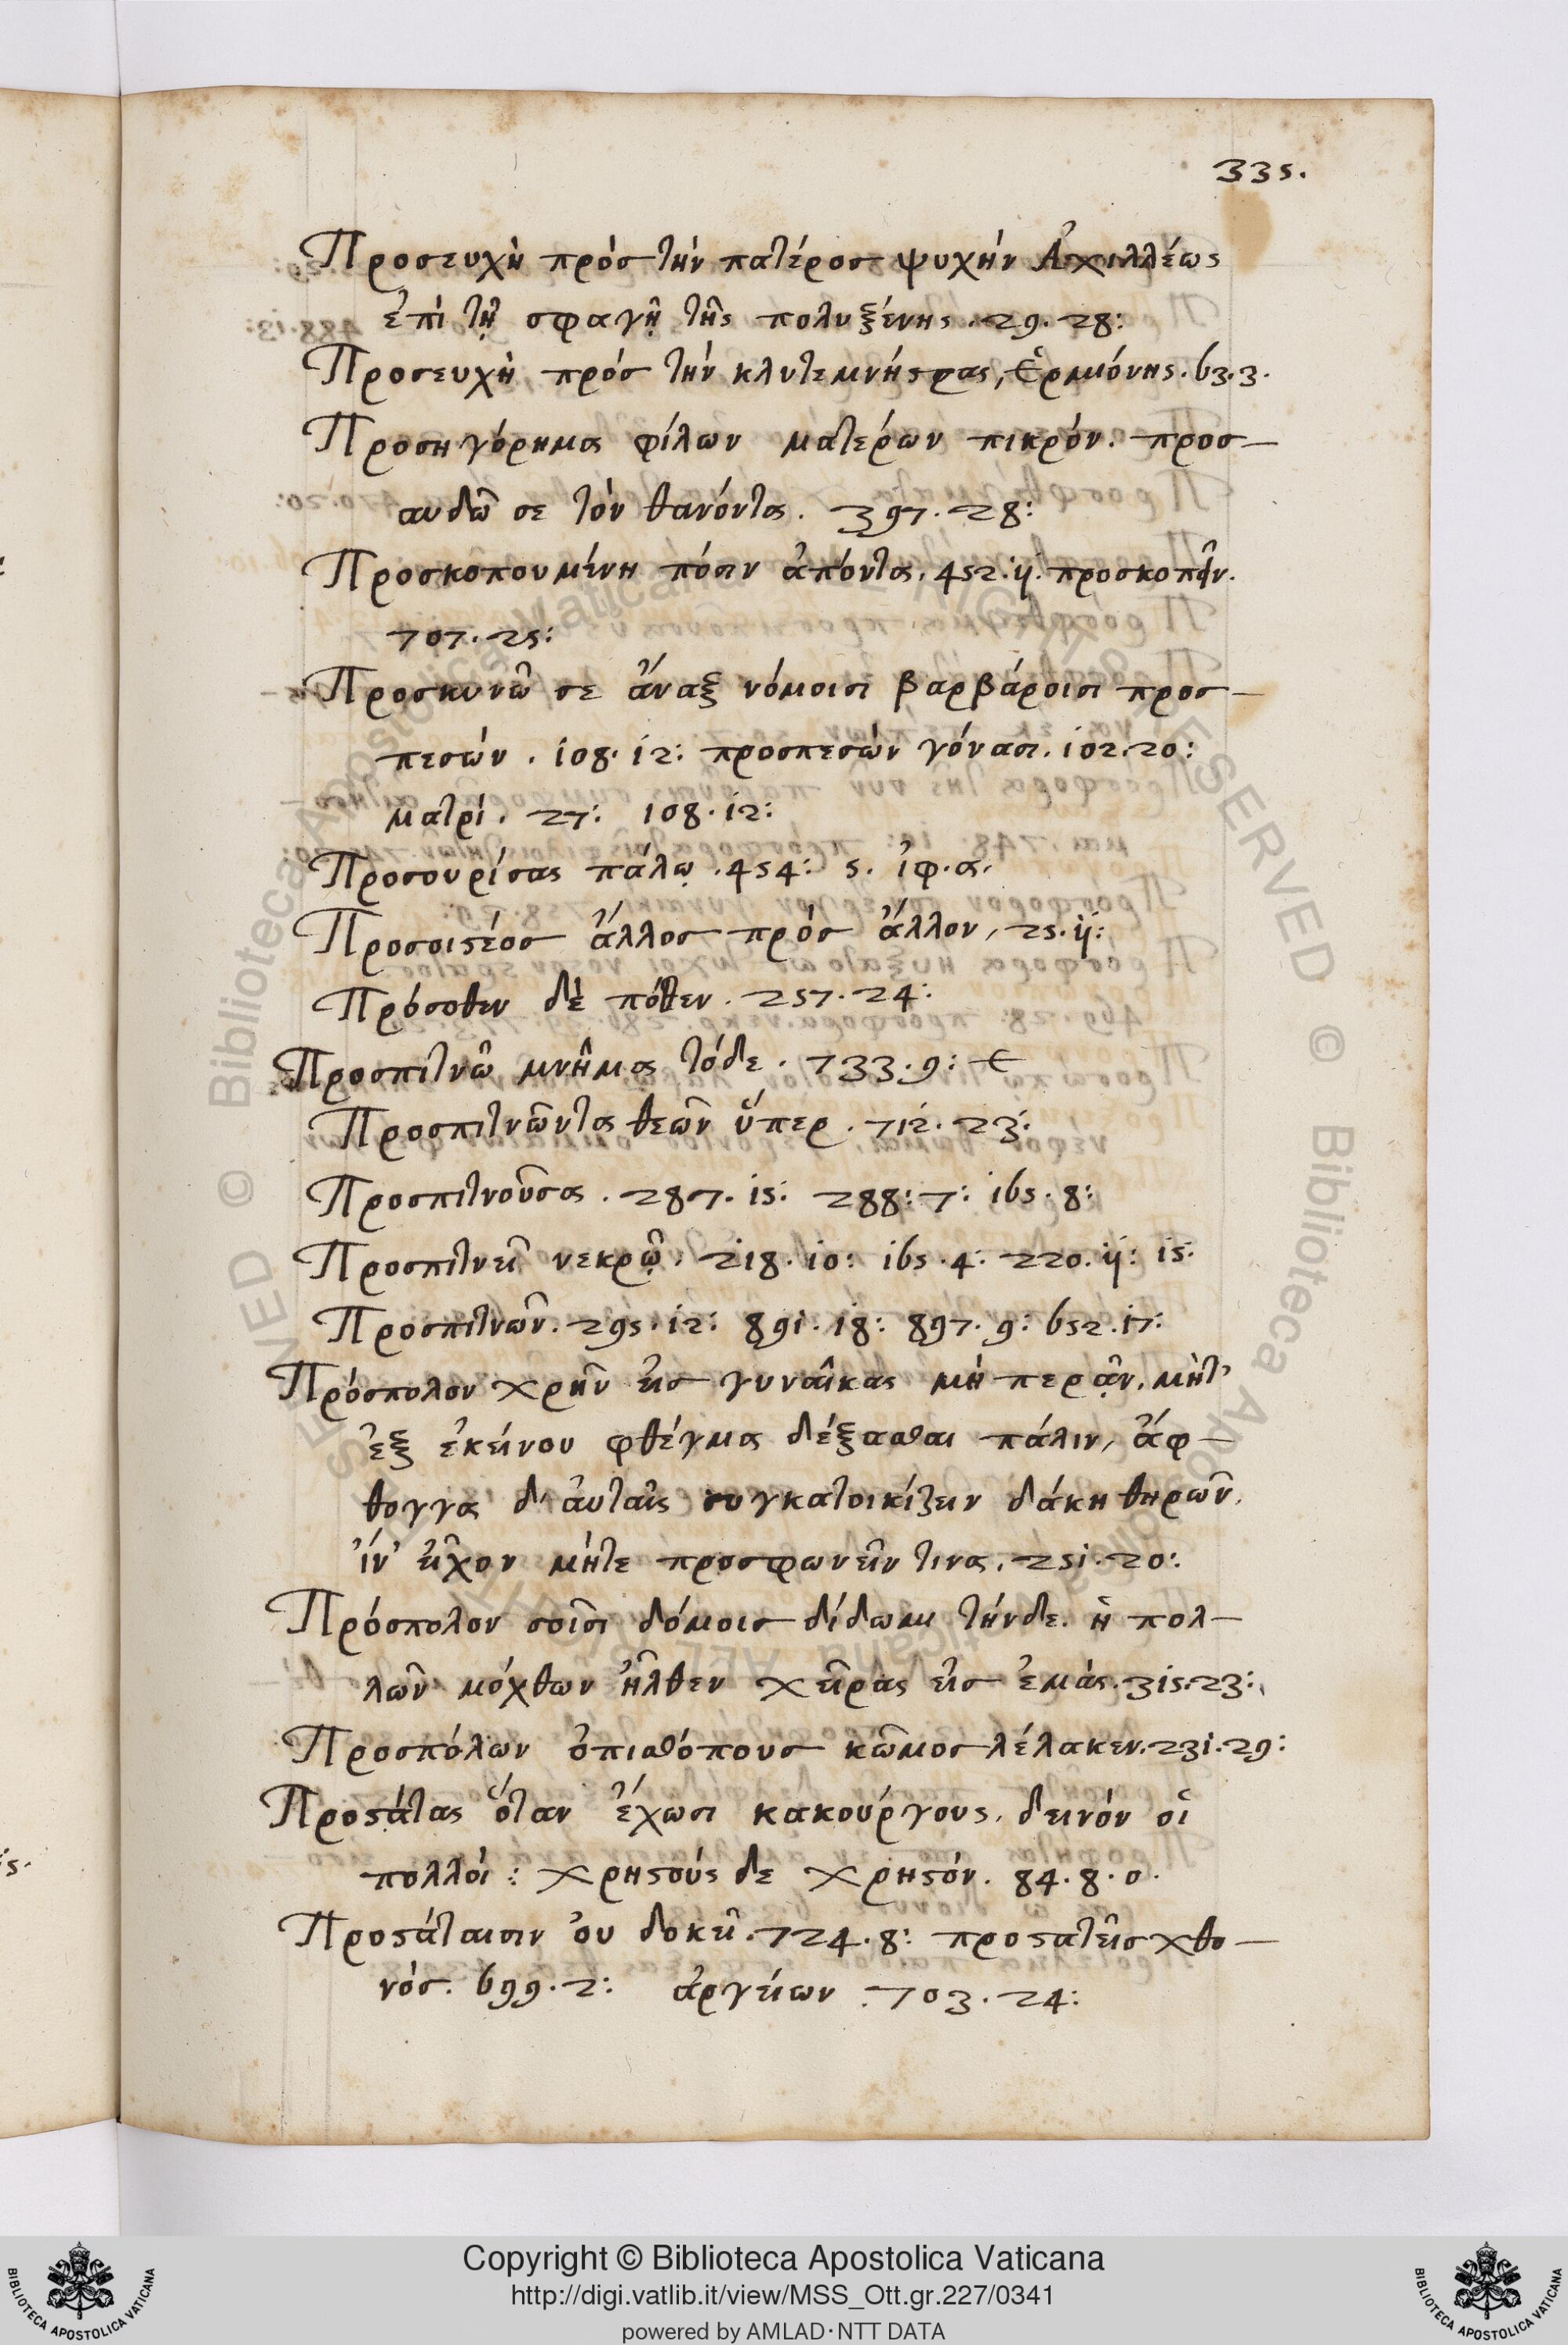 335.
Προσευχὴ πρὸσ τὴν πατέροσ ψυχὴν Ἀχιλλέως
ἐπὶ τῇ σφαγῇ τῆς πολυξένης. 29. 28:
Προσευχὴ πρόσ τὴν κλυτεμνήςρας, Ἑρμιόνης. 63. 3.
Προσηγόρημα φίλων ματέρων πικρόν. προσ—
αυδῶ σε τὸν θανόντα. 397. 28:
Προσκοπουμένη πόσιν ἀπόντα. 452. ij. προσκοπεῖν.
707. 25:
Προσκυνῶ σε ἄναξ νόμοισι βαρβάροισι προσ—
πεσών. 108. 12: προσπεσὼν γόνασι. 102. 20:
ματρί. 27: 108. 12:
Προσουρίσας πάλῳ. 454: 5. ἰφ. α.
Προσοιςέοσ ἄλλοσ πρόσ ἄλλον, 25. ij:
Πρόσοθεν δὲ πόθεν. 257. 24:
Προσπιτνῶ μνῆμα τόδε. 733. 9:
Προσπιτνῶντα θεῶν ὕπερ. 712. 23:
Προσπιτνοῦσα. 287. 15: 288: 7: ibs. 8:
Προσπιτνεῖ νεκρῷ. 218. 10: ibs. 4: 220. ij: 15:
Προσπιτνῶν. 295. 12: 891. 18: 897. 9: 652. 17:
Πρόσπολον χρῆν εἰσ γυναῖκας μὴ περᾷν. μήτ'
ἐξ ἐκείνου φθέγμα δέξασθαι πάλιν, ἄφ—
θογγα δ' ἀυταῖς συγκατοικίζειν δάκη θηρῶν.
ἵν' εἶχον μήτε προσφωνεῖν τινα. 251. 20:
Πρόσπολον σοῖσι δόμοισ δίδωμι τήνδε. ἡ πολ—
λῶν μόχθων ἦλθεν χεῖρας εἰσ ἐμάς. 315. 23:
Προσπόλων ὀπισθόπουσ κῶμοσ λέλακεν. 231. 29:
Προςάτας ὅταν ἔχωσι κακούργους. δεινόν οἱ
πολλοί: χρηςούς δε χρηςόν. 84. 8. ο.
Προςάταισιν ὀυ δοκεῖ. 724. 8: προςατεῖσ χθο—
νόσ. 699. 2: ἀργείων. 703. 24:
Copyright © Biblioteca Apostolica Vaticana
http://digi.vatlib.it/view/MSS_Ott.gr.227/0341
powered by AMLAD·NTT DATA
BIBLIOTECA APOSTOLICA VATICANA
BIBLIOTECA APOSTOLICA VATICANA